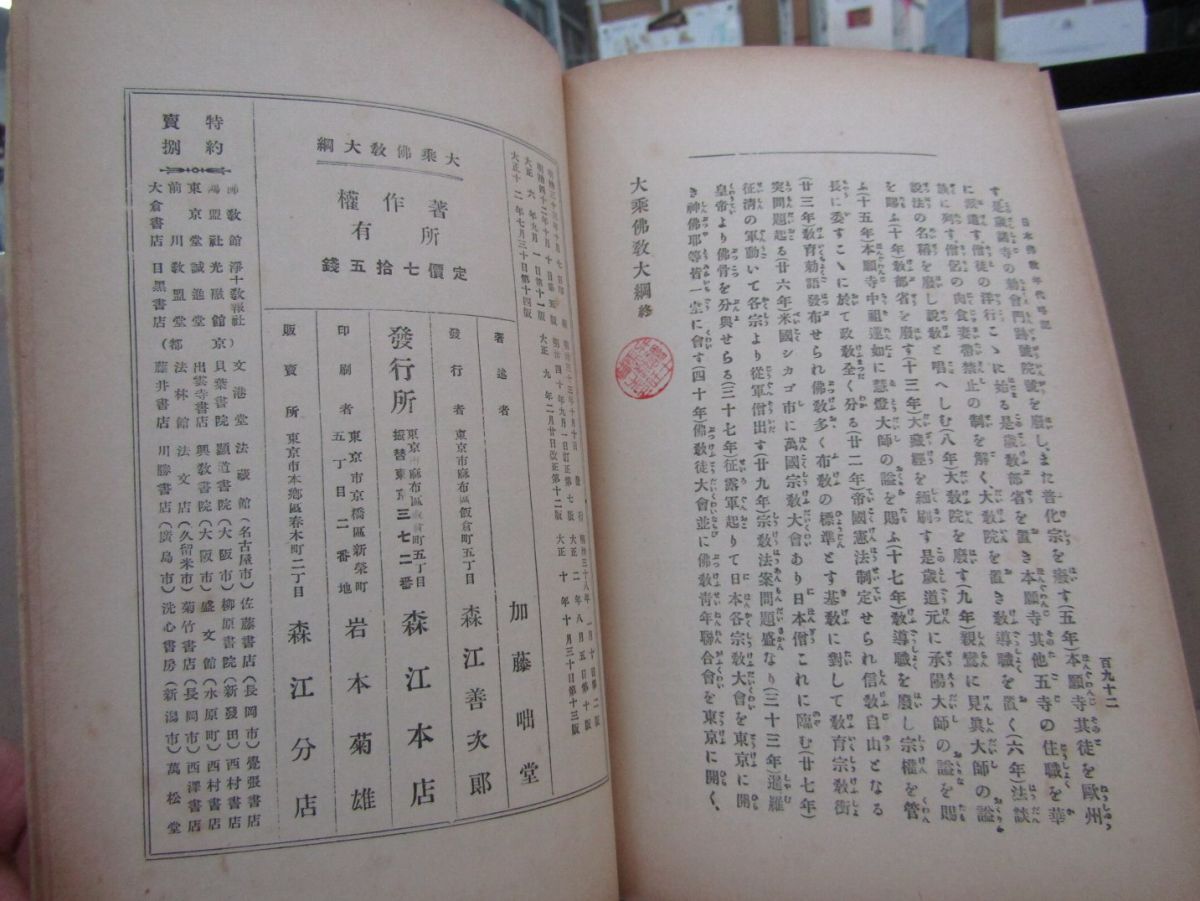 百九十二
す是歲諸寺の勅會門跡號院號を廢しまた普化宗を廢す(五年)本願寺其徒を歐州
に派遣す僧徒の洋行こゝに始る是歲敎部省を置き本願寺其他五寺の住職を華
族に列す僧侶の肉食妻帶禁止の制を解く大敎院を置き敎導職を置く(六年)法談
說法の名稱を廢し說敎と唱へしむ(八年)大敎院を廢す九年親鸞に見眞大師の謚
を賜ふ(十年)敎部省を廢す(十三年)大藏經を縮刷す是歲道元に承陽大師の謚を賜
ふ(十五年)本願寺中祖蓮如に慧燈大師の謚を賜ふ(十七年)敎導職を廢し宗權を管
長に委すこゝに於て政敎全く分る(廿二年)帝國憲法制定せられ信敎自由となる
(廿三年)敎育勅語發布せられ佛敎多く布敎の標準とす基敎に對して敎育宗敎衝
突問題起る(廿六年)米國シカゴ市に萬國宗敎大會あり日本僧これに臨む(廿七年)
征淸の軍動いて各宗より從軍僧出す(廿九年)宗敎法案問題盛なり(三十三年)暹羅
皇帝より佛骨を分與せらる(三十七年)征露軍起りて日本各宗敎大會を東京に開
き神佛耶等皆一堂に會す(四十年)佛敎徒大會並に佛敎靑年聯合會を東京に開く、
大乘佛敎大綱 終
大正六年九月一日第十一版
大正九年二月廿日改正第十二版
大正十年十月三十日第十三版
大正十二年七月三十日第十四版
大乘佛敎大綱
著作權所有
定價七拾五錢
著述者 加藤咄堂
發行者 東京市麻布區飯倉町五丁目 森江善次郞
發行所 東京市麻布區飯倉町五丁目 森江本店
三七二番
印刷者 東京市京橋區新榮町五丁目二番地 岩本菊雄
販賣所 東京市本鄕區春木町二丁目 森江分店
特約賣捌
文港堂 法藏館(名古屋市)佐藤書店(長岡市)覺張書店
貝葉書院 顯道書院(大阪市)柳原書院(新發田)西村書店
東京堂 誠進堂 出雲寺書店 興敎書院(大阪市)盛文館(水原町)西村書店
前川 敎盟堂 法林館 法文店(久留米市)菊竹書店(長岡市)西澤書店
大倉書店 目黑書店 藤井書店 川勝書店(廣島市)洗心書房(新潟市)萬松堂